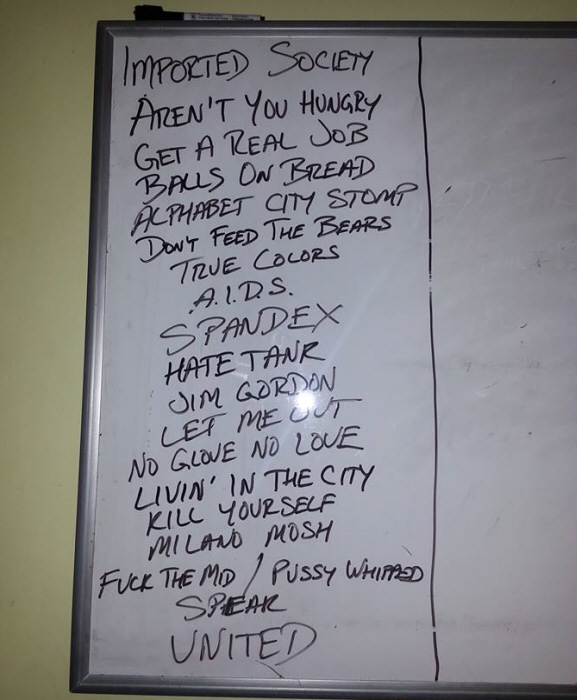 IMPORTED SOCIETY
AREN'T YOU HUNGRY
GET A REAL JOB
BALLS ON BREAD
ALPHABET CITY STOMP
DON'T FEED THE BEARS
TRUE COLORS
A.I.D.S.
SPANDEX
HATE TANK
JIM GORDON
LET ME OUT
NO GLOVE NO LOVE
LIVIN' IN THE CITY
KILL YOURSELF
MILANO MOSH
FUCK THE MID / PUSSY WHIPPED
SPEAK
UNITED